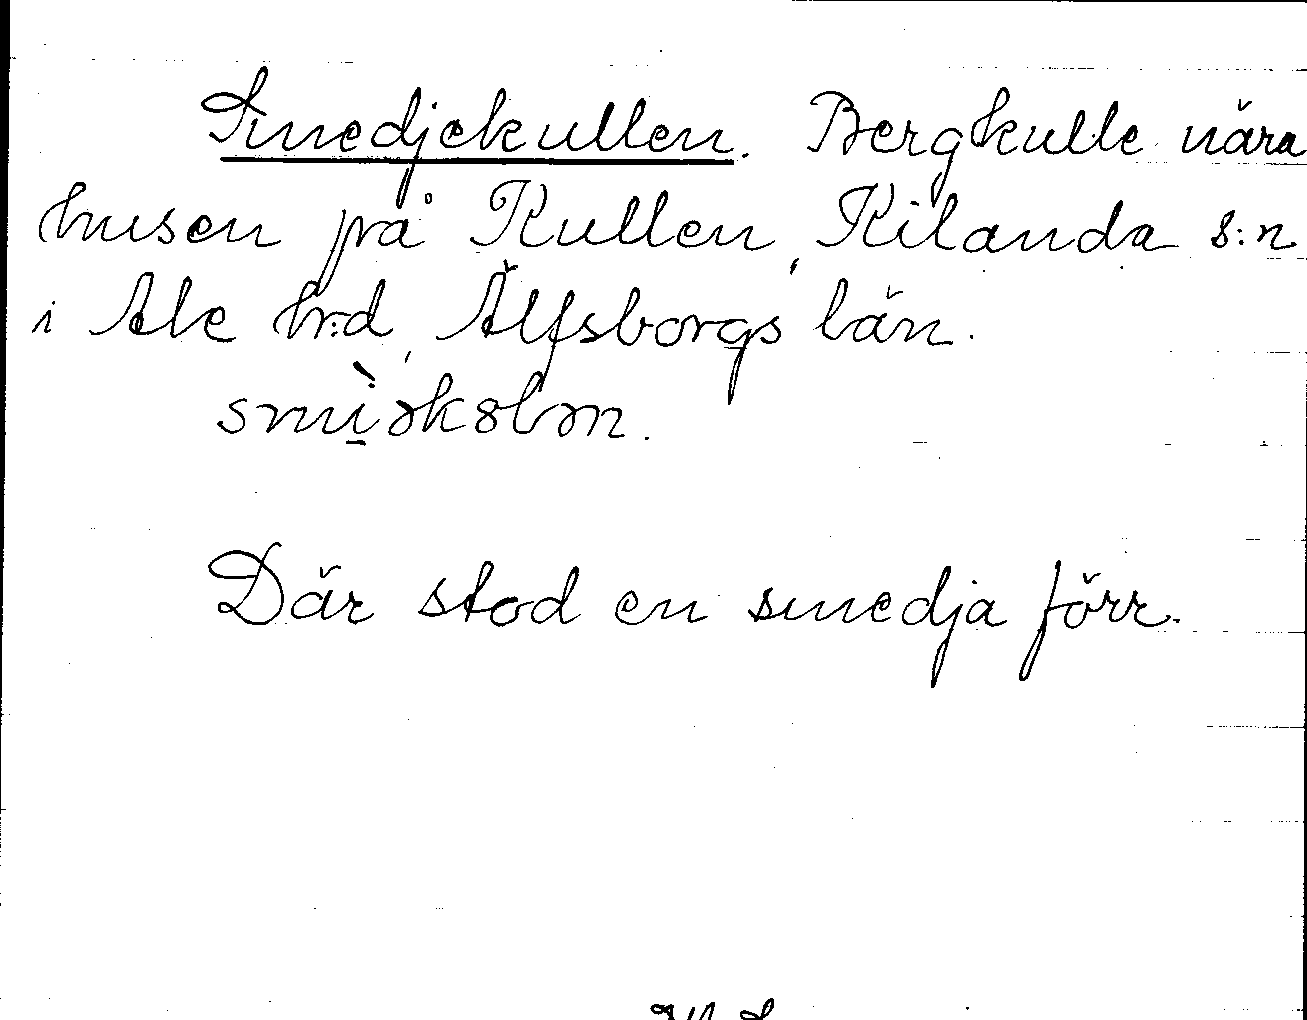 Smedjekullen. Bergkulle nära
husen på Kullen, Kilanda s:n
i Ale hrd, Älfsborgs län.
Där stod en smedja förr.